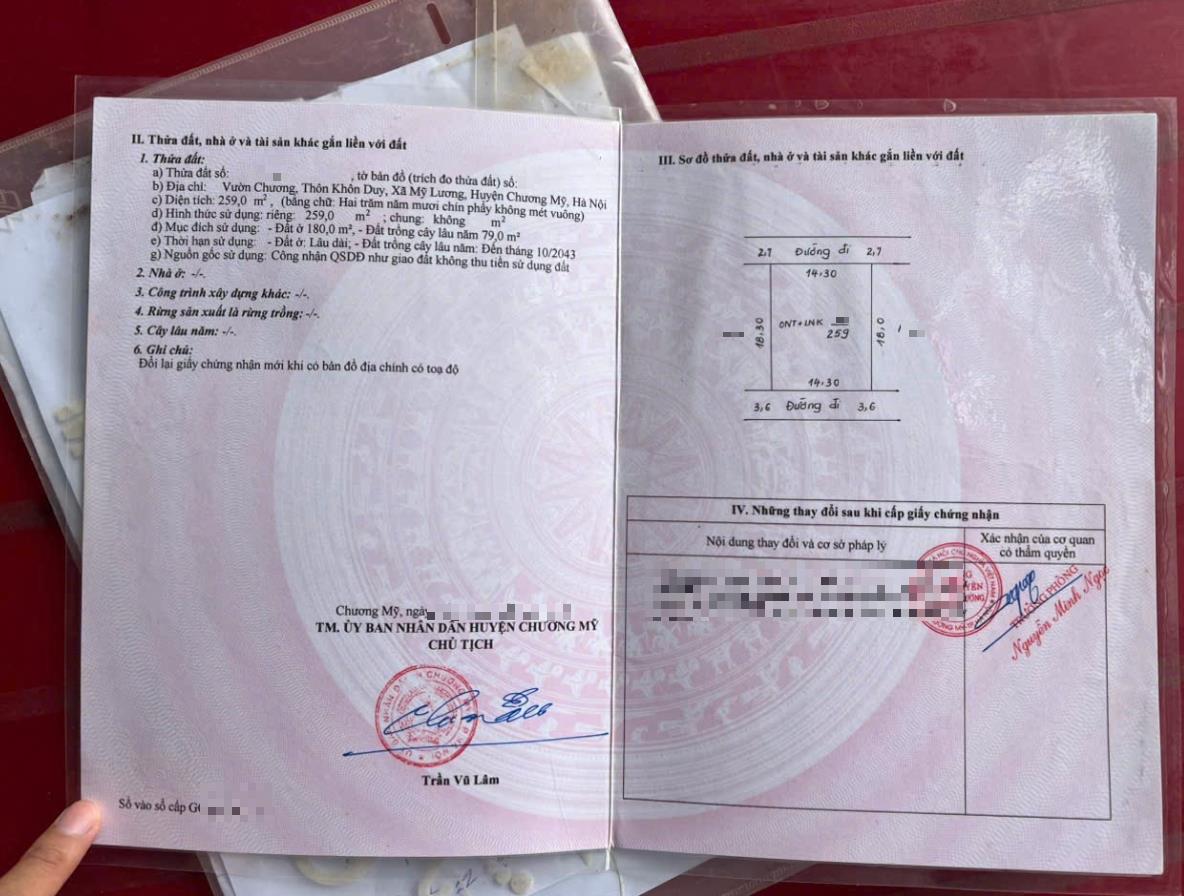 II. Thửa đất, nhà ở và tài sản khác gắn liền với đất
1. Thửa đất:
a) Thửa đất số: , tờ bản đồ (trích đo thửa đất) số:
b) Địa chỉ: Vườn Chương, Thôn Khôn Duy, Xã Mỹ Lương, Huyện Chương Mỹ, Hà Nội
c) Diện tích: 259,0 m², (bằng chữ: Hai trăm năm mươi chín phẩy không mét vuông)
d) Hình thức sử dụng: riêng: 259,0 m² ; chung: không m²
đ) Mục đích sử dụng: - Đất ở 180,0 m², - Đất trồng cây lâu năm 79,0 m²
e) Thời hạn sử dụng: - Đất ở: Lâu dài; - Đất trồng cây lâu năm: Đến tháng 10/2043
g) Nguồn gốc sử dụng: Công nhận QSDĐ như giao đất không thu tiền sử dụng đất
2. Nhà ở: -/-.
3. Công trình xây dựng khác: -/-.
4. Rừng sản xuất là rừng trồng: -/-.
5. Cây lâu năm: -/-.
6. Ghi chú:
Đổi lại giấy chứng nhận mới khi có bản đồ địa chính có toạ độ
Chương Mỹ, ngày
TM. ỦY BAN NHÂN DÂN HUYỆN CHƯƠNG MỸ
CHỦ TỊCH
Trần Vũ Lâm
Số vào sổ cấp G
III. Sơ đồ thửa đất, nhà ở và tài sản khác gắn liền với đất
2,7 Đường đi 2,7
14,30
18,30 ONT+LNK 259 18,0
14,30
3,6 Đường đi 3,6
IV. Những thay đổi sau khi cấp giấy chứng nhận
Nội dung thay đổi và cơ sở pháp lý
Xác nhận của cơ quan
có thẩm quyền
TRƯỞNG PHÒNG
Nguyễn Minh Ngọc